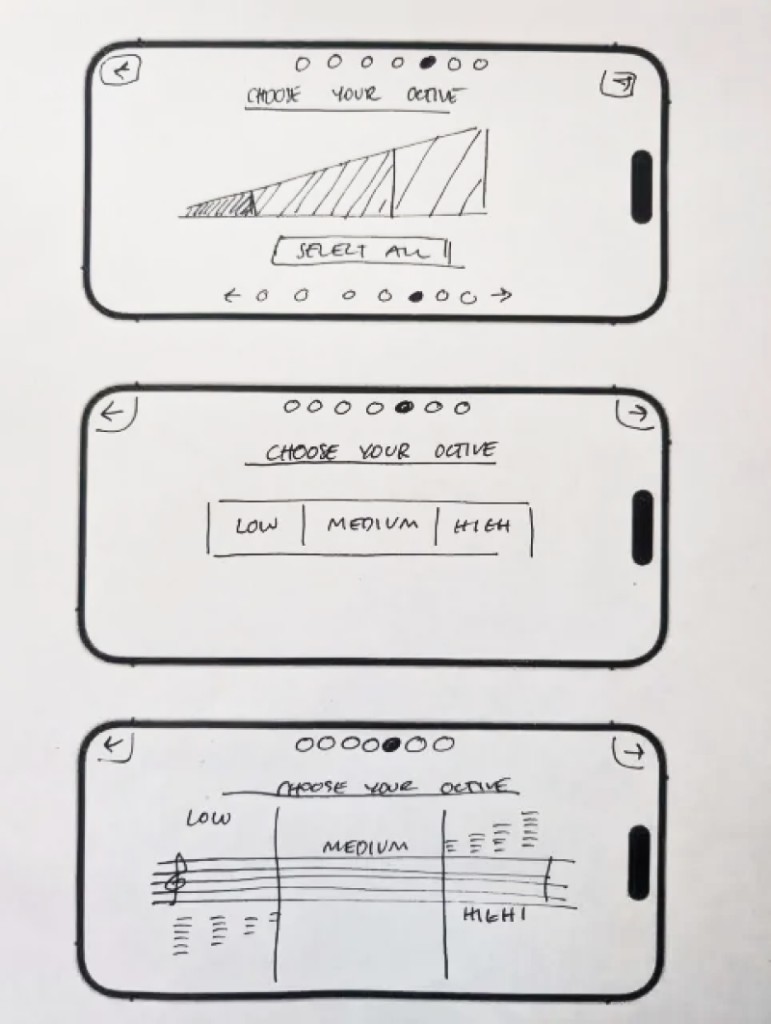 CHOOSE YOUR OCTIVE
SELECT ALL
CHOOSE YOUR OCTIVE
LOW MEDIUM HIGH
CHOOSE YOUR OCTIVE
LOW
MEDIUM
HIGH